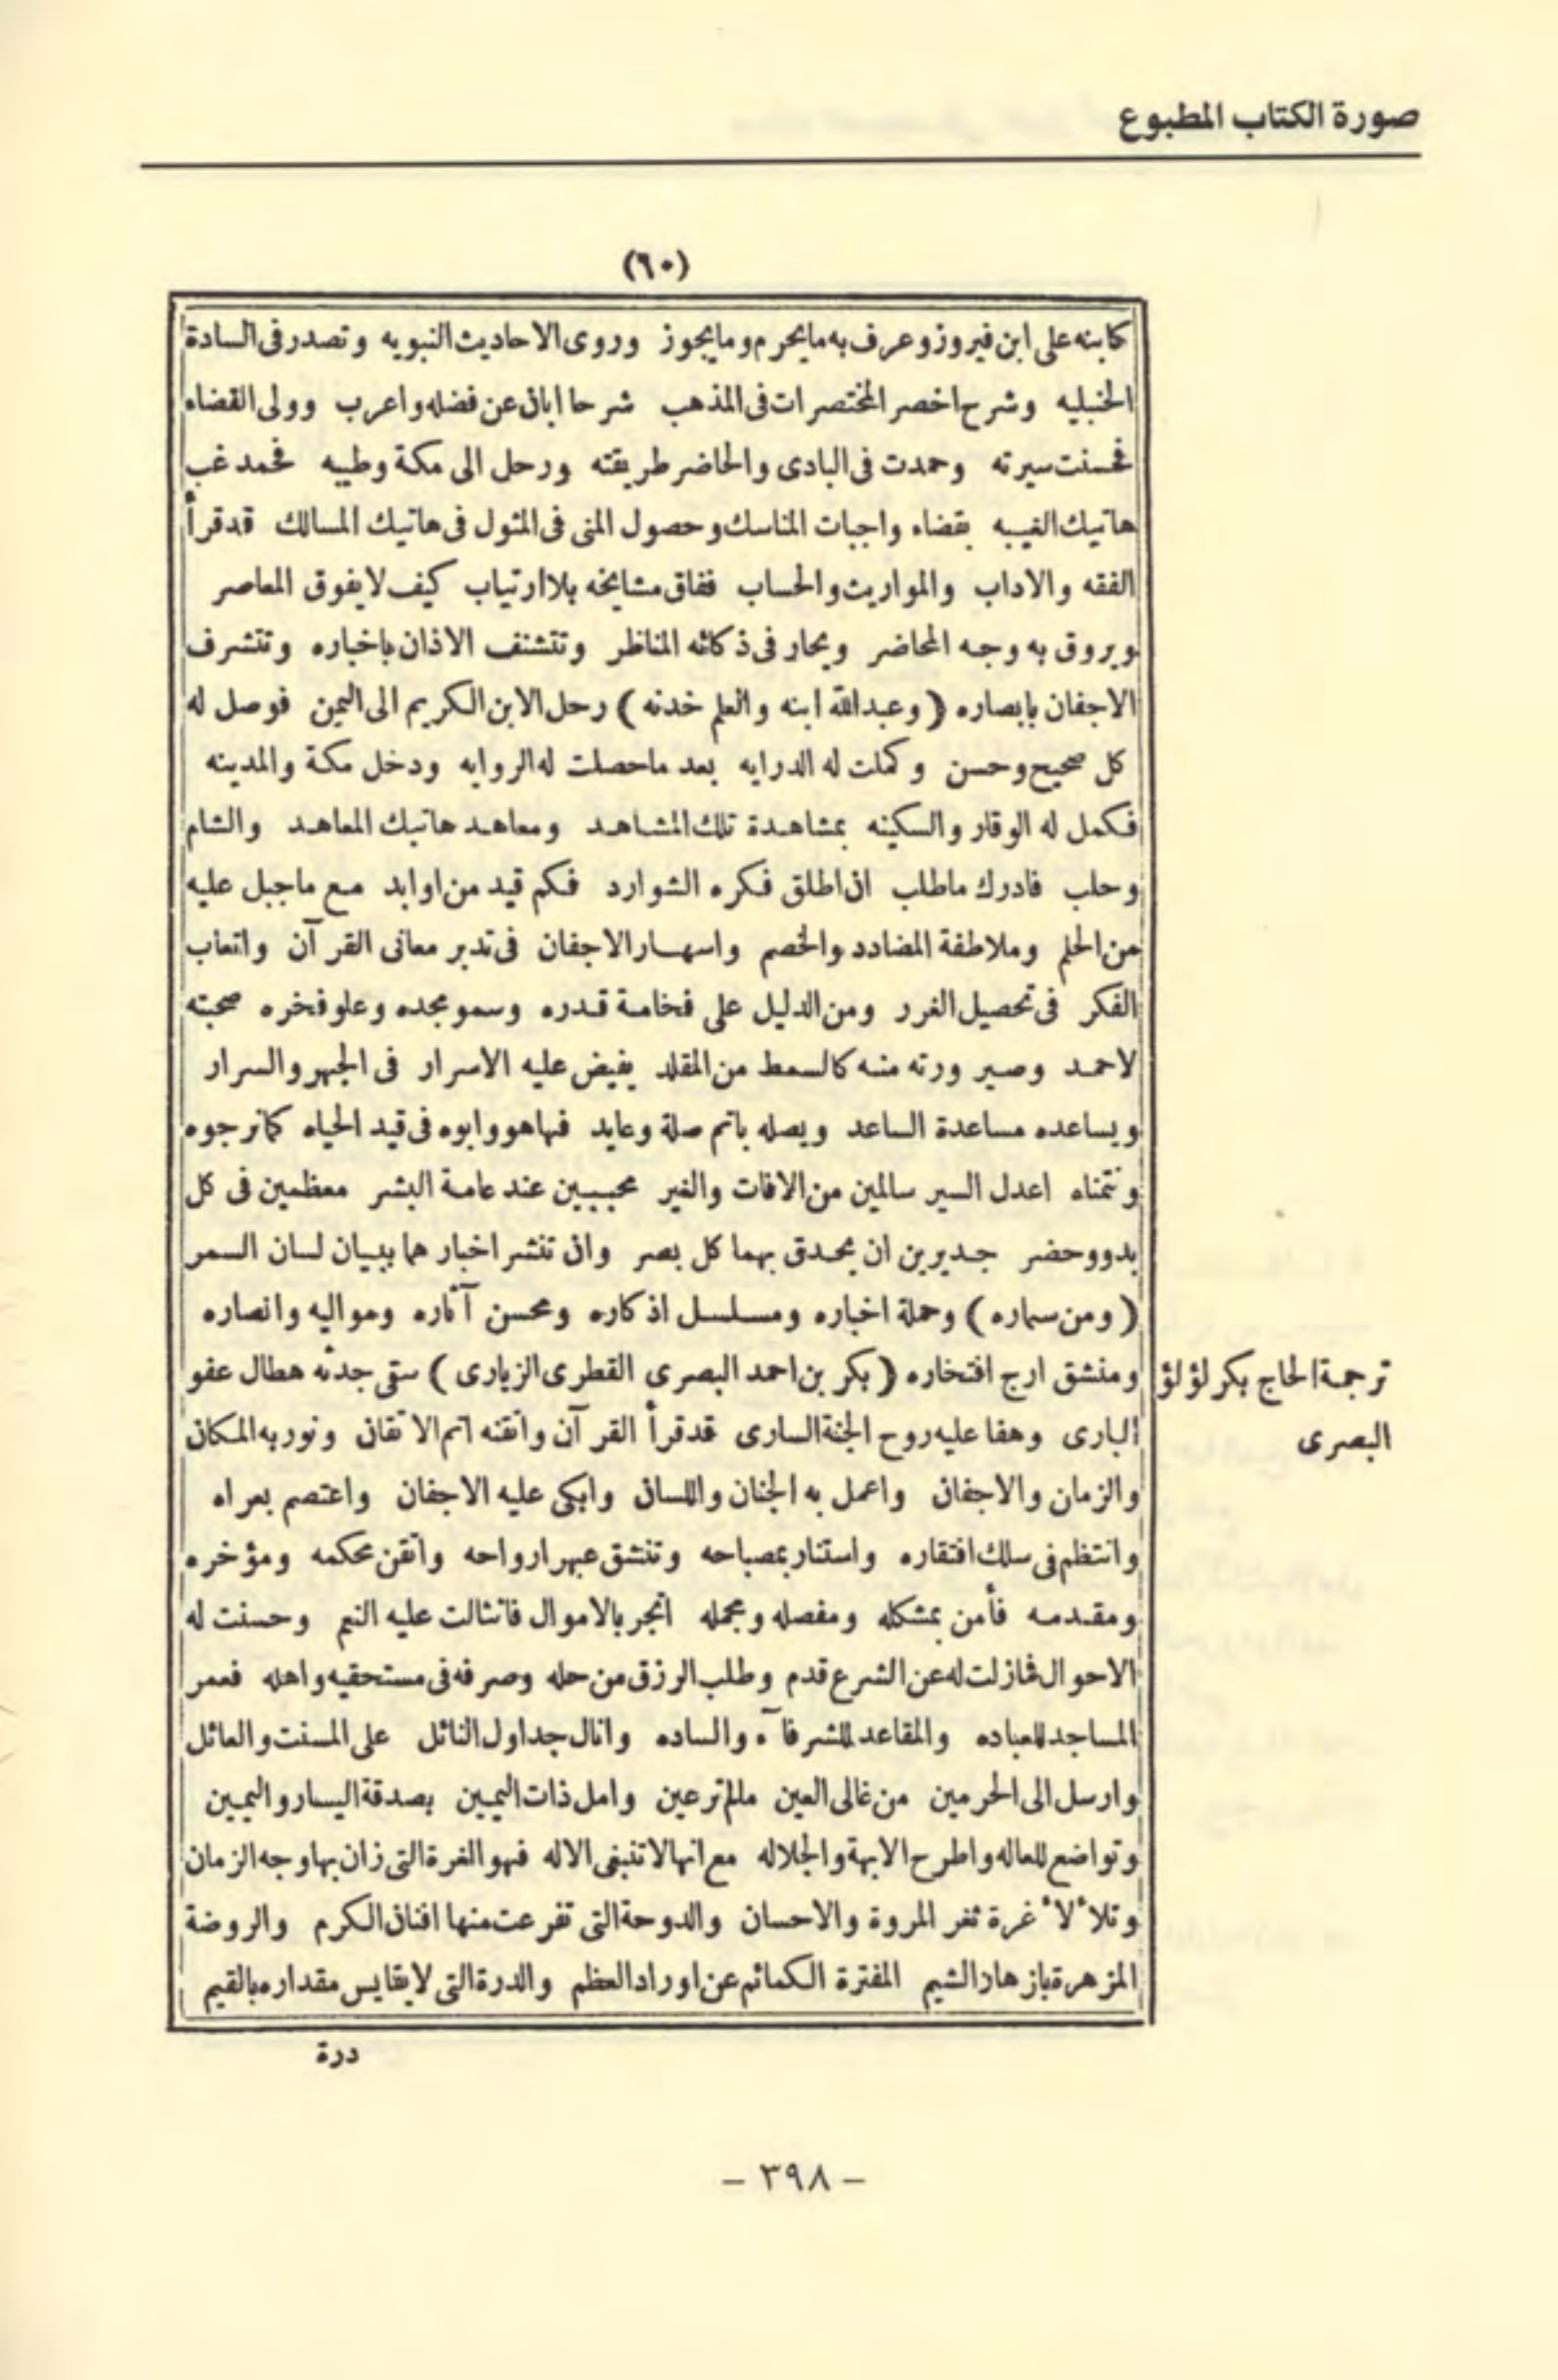 صورة الكتاب المطبوع
(٦٠)
كابنه على ابن فيروز وعرف به مايحرم ومايجوز وروى الاحاديث النبويه وتصدر فى السادة
الحنبليه وشرح اخصر المختصرات فى المذهب شرحا ابان عن فضله واعرب وولى القضاء
فحسنت سيرته وحمدت فى البادى والحاضر طريقته ورحل الى مكة وطيبه فحمد غب
هاتيك الغيبه بقضاء واجبات المناسك وحصول المنى فى المثول فى هاتيك المسالك قد قرأ
الفقه والاداب والمواريث والحساب ففاق مشايخه بلا ارتياب كيف لا يفوق المعاصر
ويروق به وجه المحاضر ويحار فى ذكائه المناظر وتتشنف الاذان باخباره وتتشرف
الاجفان بابصاره (وعبدالله ابنه والعلم خدنه) رحل الابن الكريم الى اليمن فوصل له
كل صحيح وحسن وكملت له الدرايه بعد ماحصلت له الروايه ودخل مكة والمدينه
فكمل له الوقار والسكينه بمشاهدة تلك المشاهد ومعاهد هاتيك المعاهد والشام
وحلب فادرك ماطلب ان اطلق فكره الشوارد فكم قيد من اوابد مع ماجبل عليه
من الحلم وملاطفة المضادد والخصم واسهار الاجفان فى تدبر معانى القرآن واتعاب
الفكر فى تحصيل الغرر ومن الدليل على فخامة قدره وسمو مجده وعلو فخره صحبته
لاحمد وصير ورته منه كالسمط من المقلد يفيض عليه الاسرار فى الجهر والسرار
ويساعده مساعدة الساعد ويصله باتم صلة وعايد فها هو وابوه فى قيد الحياه كمانرجوه
ونتمناه اعدل السير سالمين من الافات والغير محببين عند عامة البشر معظمين فى كل
بدو وحضر جديرين ان يحدق بهما كل بصر وان تنشر اخبارهما ببيان لسان السمر
(ومن سماره) وحملة اخباره ومسلسل اذكاره ومحسن آثاره ومواليه وانصاره
ومنشق ارج افتخاره (بكر بن احمد البصرى القطرى الزبارى) سقى جدثه هطال عفو
ترجمة الحاج بكر لؤلؤ
البصرى
البارى وهفا عليه روح الجنة السارى قد قرأ القرآن واتقنه اتم الاتقان ونور به المكان
والزمان والاجفان واعمل به الجنان واللسان وابكى عليه الاجفان واعتصم بعراه
وانتظم فى سلك افتقاره واستنار بمصباحه وتنشق عبهر ارواحه واتقن محكمه ومؤخره
ومقدمه فأمن بمشكله ومفصله ومجمله اتجر بالاموال فانثالت عليه النعم وحسنت له
الاحوال فمازلت له عن الشرع قدم وطلب الرزق من حله وصرفه فى مستحقيه واهله فعمر
المساجد للعباده والمقاعد للشرفآء والساده وانال جداول النائل على المسنت والعائل
وارسل الى الحرمين من غالى العين مالم ترعين وامل ذات اليمين بصدقة اليسار واليمين
وتواضع للعاله واطرح الابهة والجلاله مع انها لاتنبغى الاله فهو الغرة التى زان بها وجه الزمان
وتلأ لأ غرة ثغر المروة والاحسان والدوحة التى تفرعت منها افنان الكرم والروضة
المزهرة بازهار الشيم المفترة الكمائم عن اوراد العظم والدرة التى لا يقايس مقداره بالقيم
درة
- ٣٩٨ -